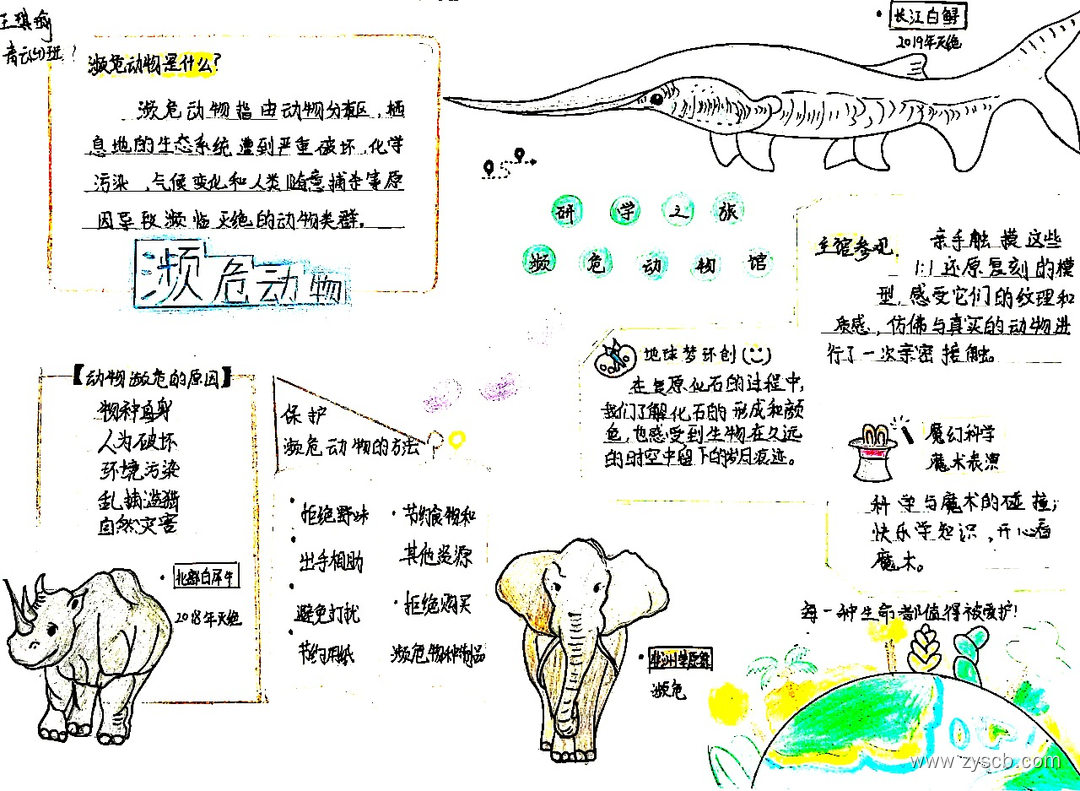 王琪瑜
濒危动物是什么?
濒危动物指由动物分布区,栖
息地的生态系统遭到严重破坏,化学
污染,气候变化和人类随意捕杀等原
因导致濒临灭绝的动物类群。
濒危动物
长江白鲟
2019年灭绝
研学之旅
濒危动物馆
主馆参观
亲手触摸这些
1:1还原复刻的模
型,感受它们的纹理和
质感,仿佛与真实的动物进
行了一次亲密接触。
地球梦环创
在复原化石的过程中,
我们了解化石的形成和颜
色,也感受到生物在久远
的时空中留下的岁月痕迹。
魔幻科学
魔术表演
科学与魔术的碰撞;
快乐学知识,开心看
魔术。
【动物濒危的原因】
物种自身
人为破坏
环境污染
乱捕滥猎
自然灾害
北部白犀牛
2018年灭绝
保护
濒危动物的方法
·拒绝野味
·出手相助
·避免打扰
·节约用纸
·节约食物和
其他资源
·拒绝购买
濒危物种物品
非洲草原象
濒危
每一种生命都值得被爱护!
www.zyscb.com